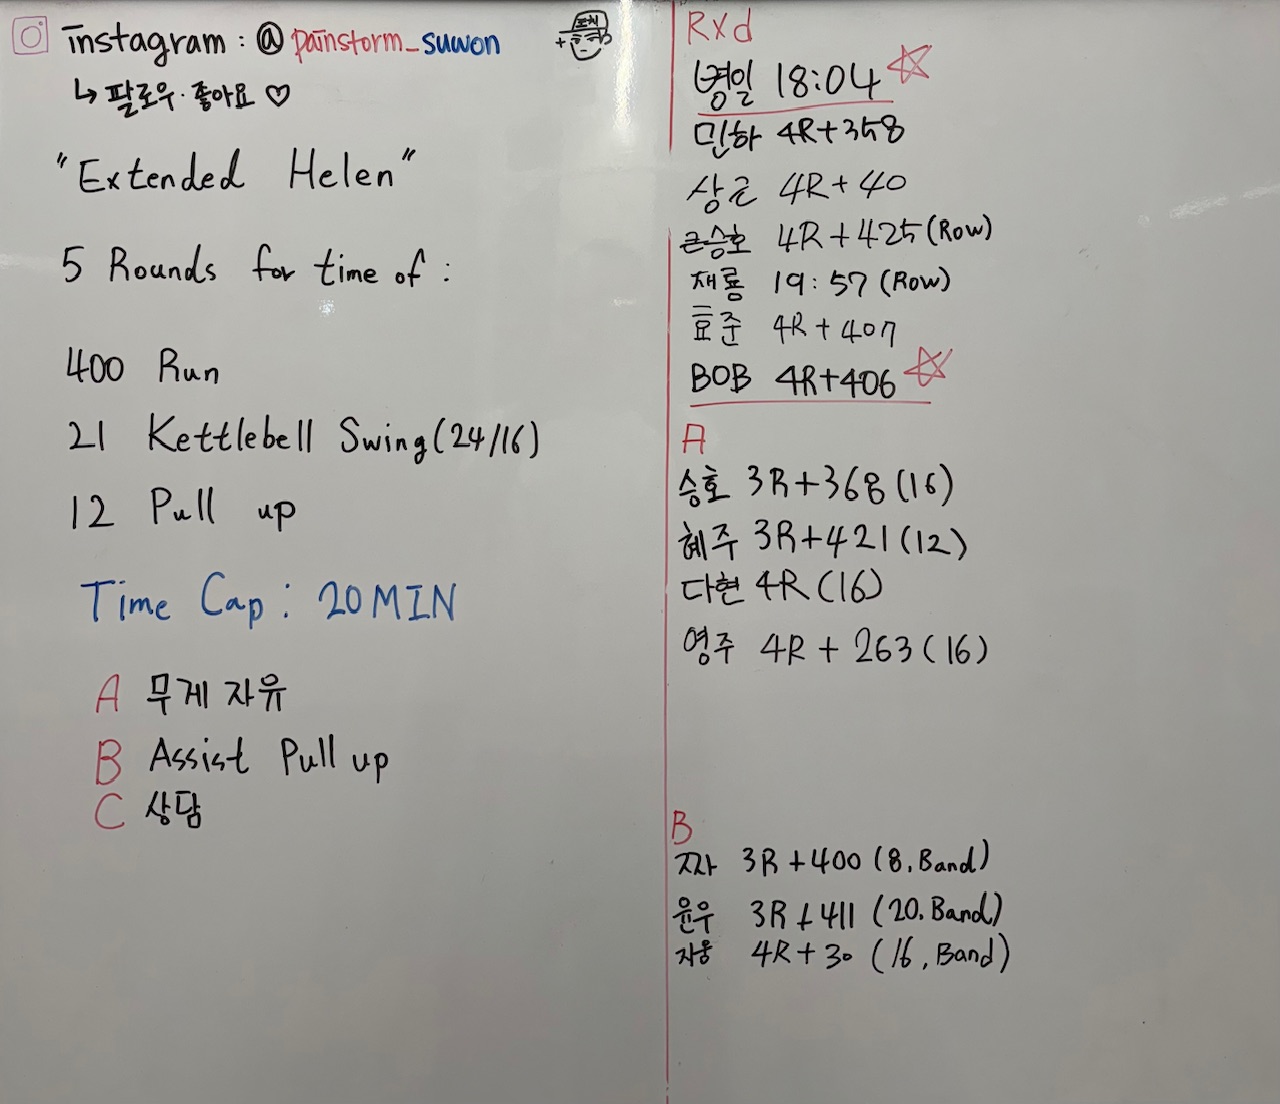 instagram : @painstorm_suwon
↳ 팔로우·좋아요 ♡
"Extended Helen"
5 Rounds for time of :
400 Run
21 Kettlebell Swing(24/16)
12 Pull up
Time Cap : 20MIN
A 무게 자유
B Assist Pull up
C 상담
코치
Rxd
병일 18:04
민하 4R+358
상근 4R+40
큰승호 4R+425(Row)
재룡 19:57(Row)
효준 4R+407
BOB 4R+406
A
승호 3R+368(16)
혜주 3R+421(12)
다현 4R(16)
영주 4R+263(16)
B
3R+400(8, Band)
윤우 3R+411(20, Band)
자웅 4R+30(16, Band)